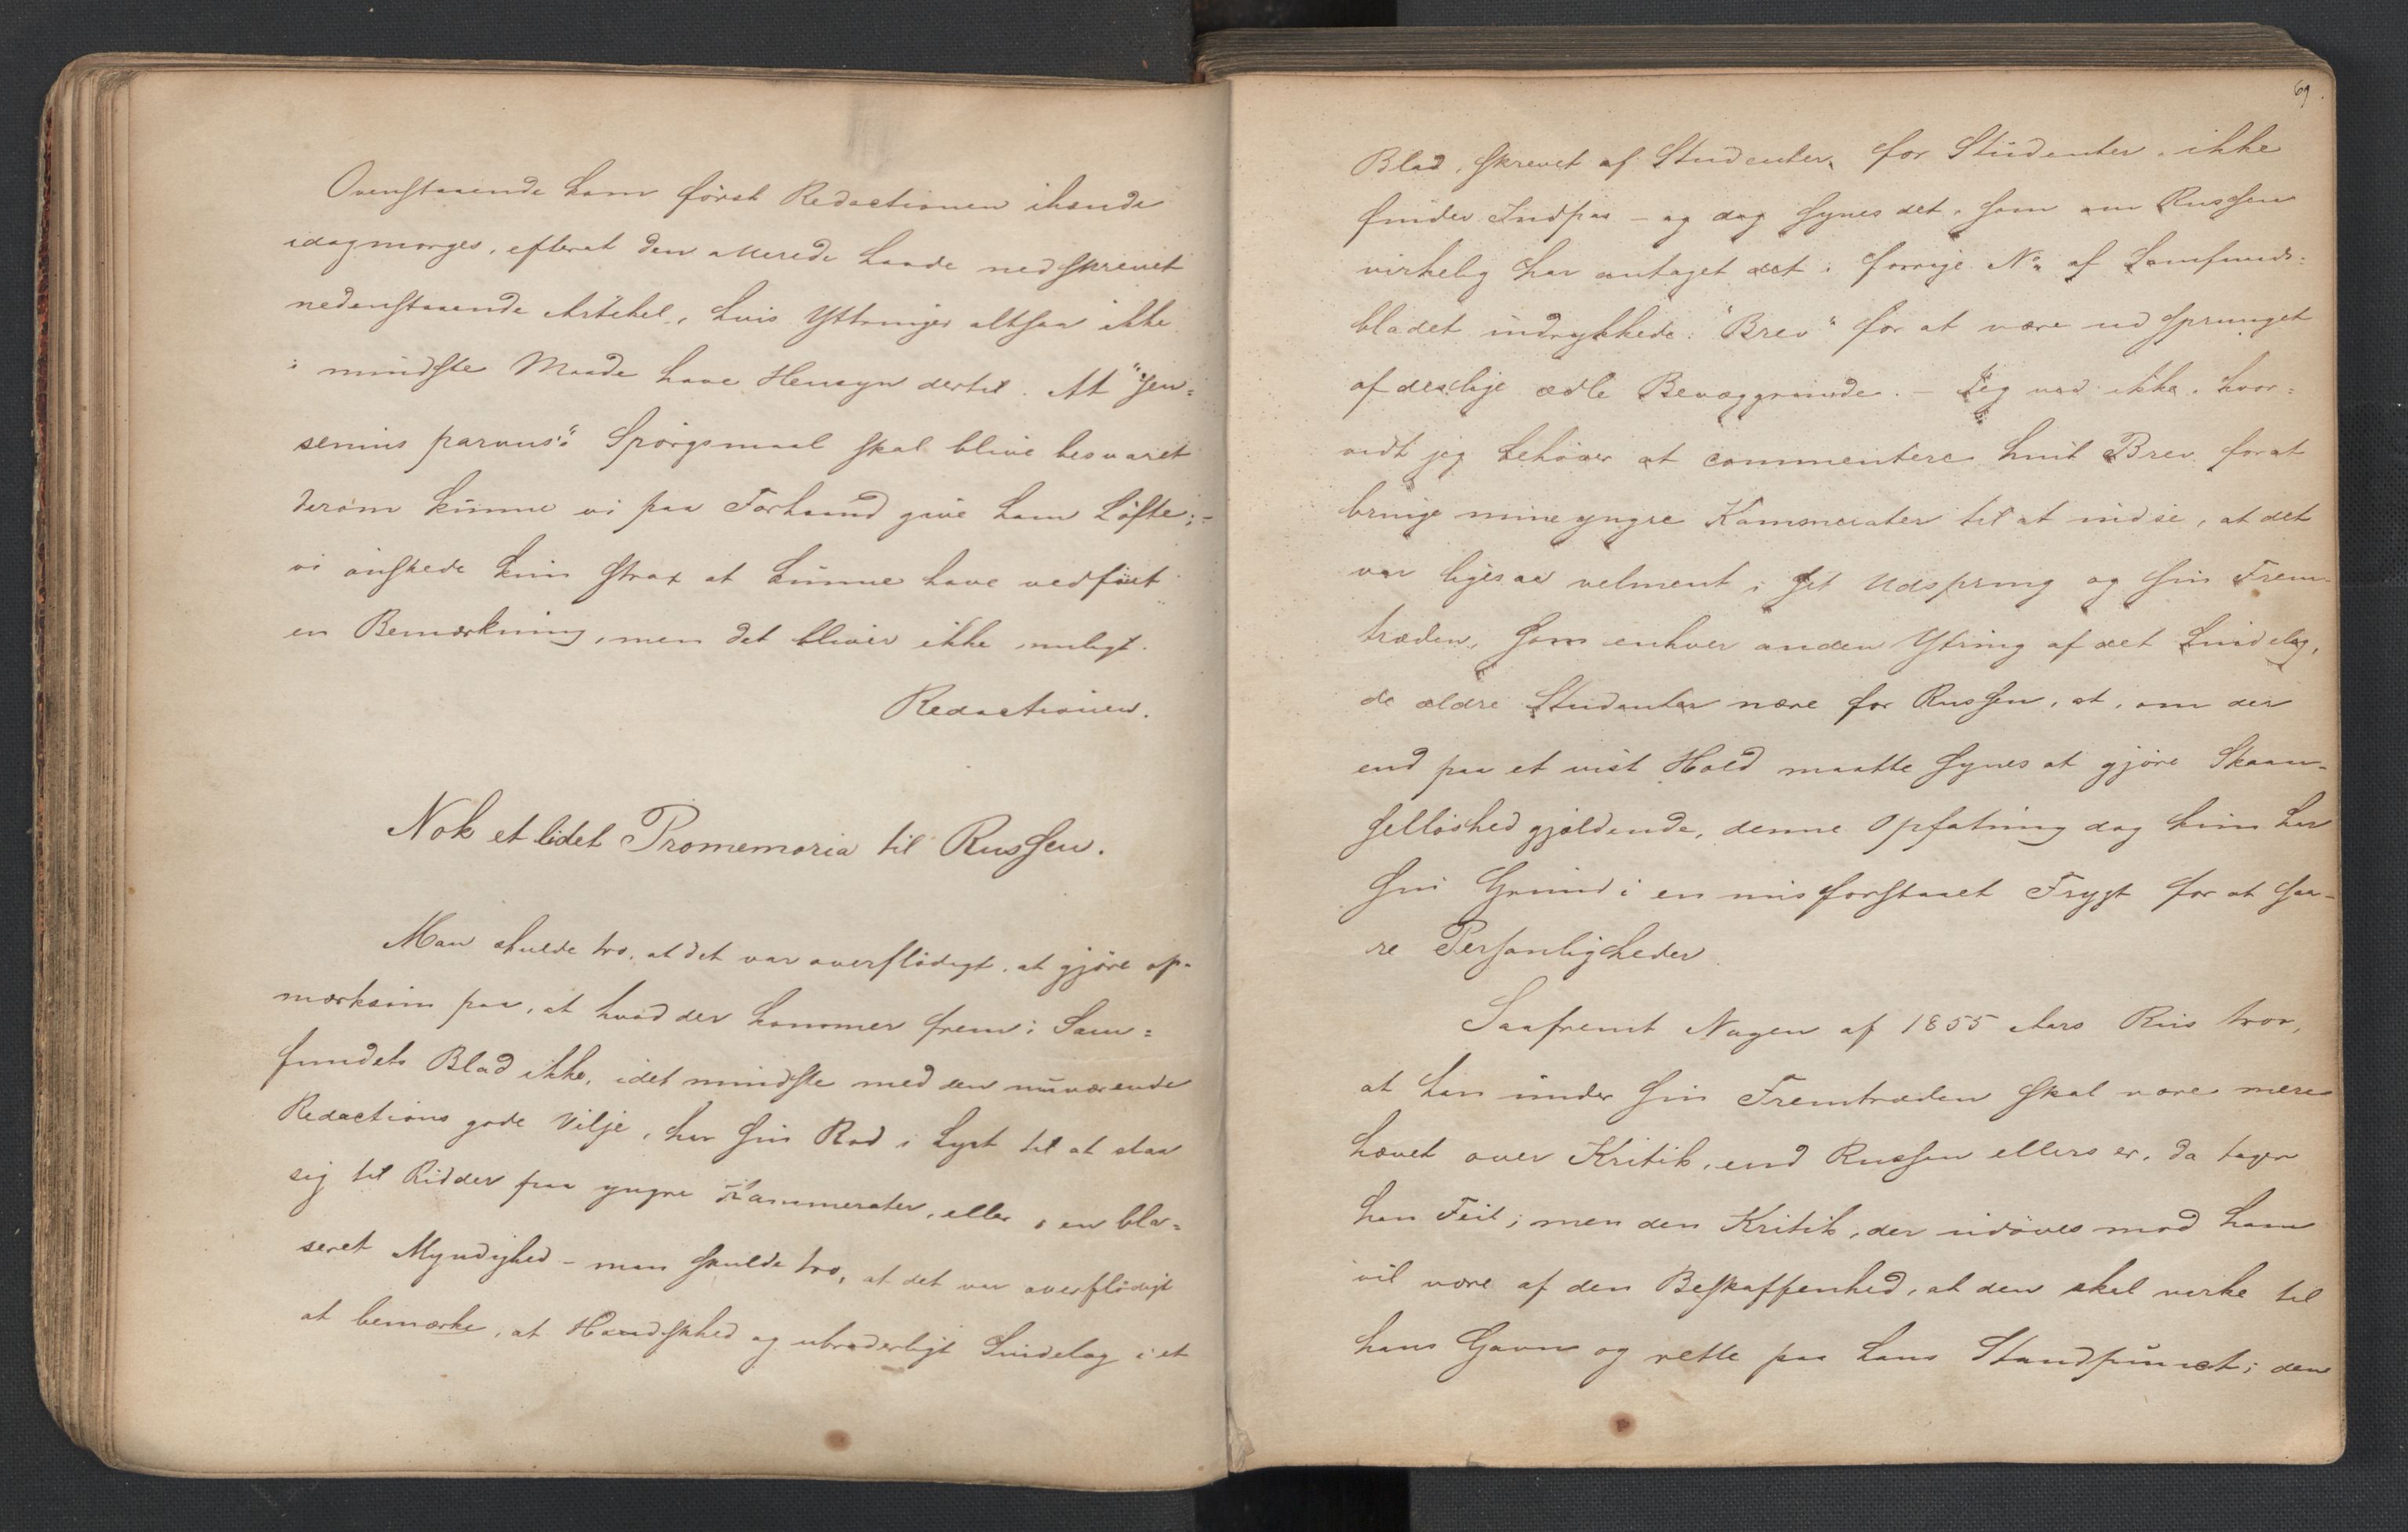 Ovenstaaende kom först Redactionen ihænde
idagmorges, efterat den allerede havde nedskrevet
nedenstaaende Artikel, hvis Yttringer altsaa ikke
i mindste Maade have Hensyn dertil. At "Jen=
senius parvus's" Spörgsmaal skal blive besvaret
derom kunne vi paa Forhaand give ham Löfte;-
vi önskede kun strax at kunne have vedföiet
en Bemærkning, men det bliver ikke muligt.
Redactionen.
Nok et lidet Promemoria til Russen.
Man skulde tro, at det var overflödigt, at gjöre op-
mærksom paa, at hvad der kommer frem i Sam=
fundets Blad ikke, idet mindste med den nuværende
Redactions gode Vilje, har sin Rod i Lyst til at slaa
sig til Ridder paa yngre Kammerater, eller i en bla=
seret Myndighed - man skulde tro, at det var overflödigt
at bemærke, at Haardhed og ubroderligt Sindelag i et
69.
Blad, skrevet af Studenter for Studenter, ikke
finder Indpas - og dog synes det, som om Russen
virkelig har antaget det i forrige No. af Samfunds=
bladet indrykkede "Brev" for at være udsprunget
af deslige ædle Bevæggrunde. - Jeg ved ikke, hvor=
vidt jeg behöver at commentere hint Brev for at
bringe mine yngre Kammerater til at indsé, at det
var ligesaa velment i sit Udspring og sin Frem-
træden, som enhver anden Ytring af det Sindelag,
de ældre Studenter nære for Russen, at, om der
end paa et vist Hold maatte synes at gjöre Skaan-
sellöshed gjældende, denne Opfatning dog kun har
sin Grund i en misforstaaet Frygt for at saa-
re Personligheder.
Saafremt Nogen af 1855 Aars Rus tror,
at han under sin Fremtræden skal være mere
hævet over Kritik, end Russen ellers er, da tager
han Feil; men den Kritik, der udöves mod ham
vil være af den Beskaffenhed, at den skal virke til
hans Gavn og rette paa hans Standpunct; den